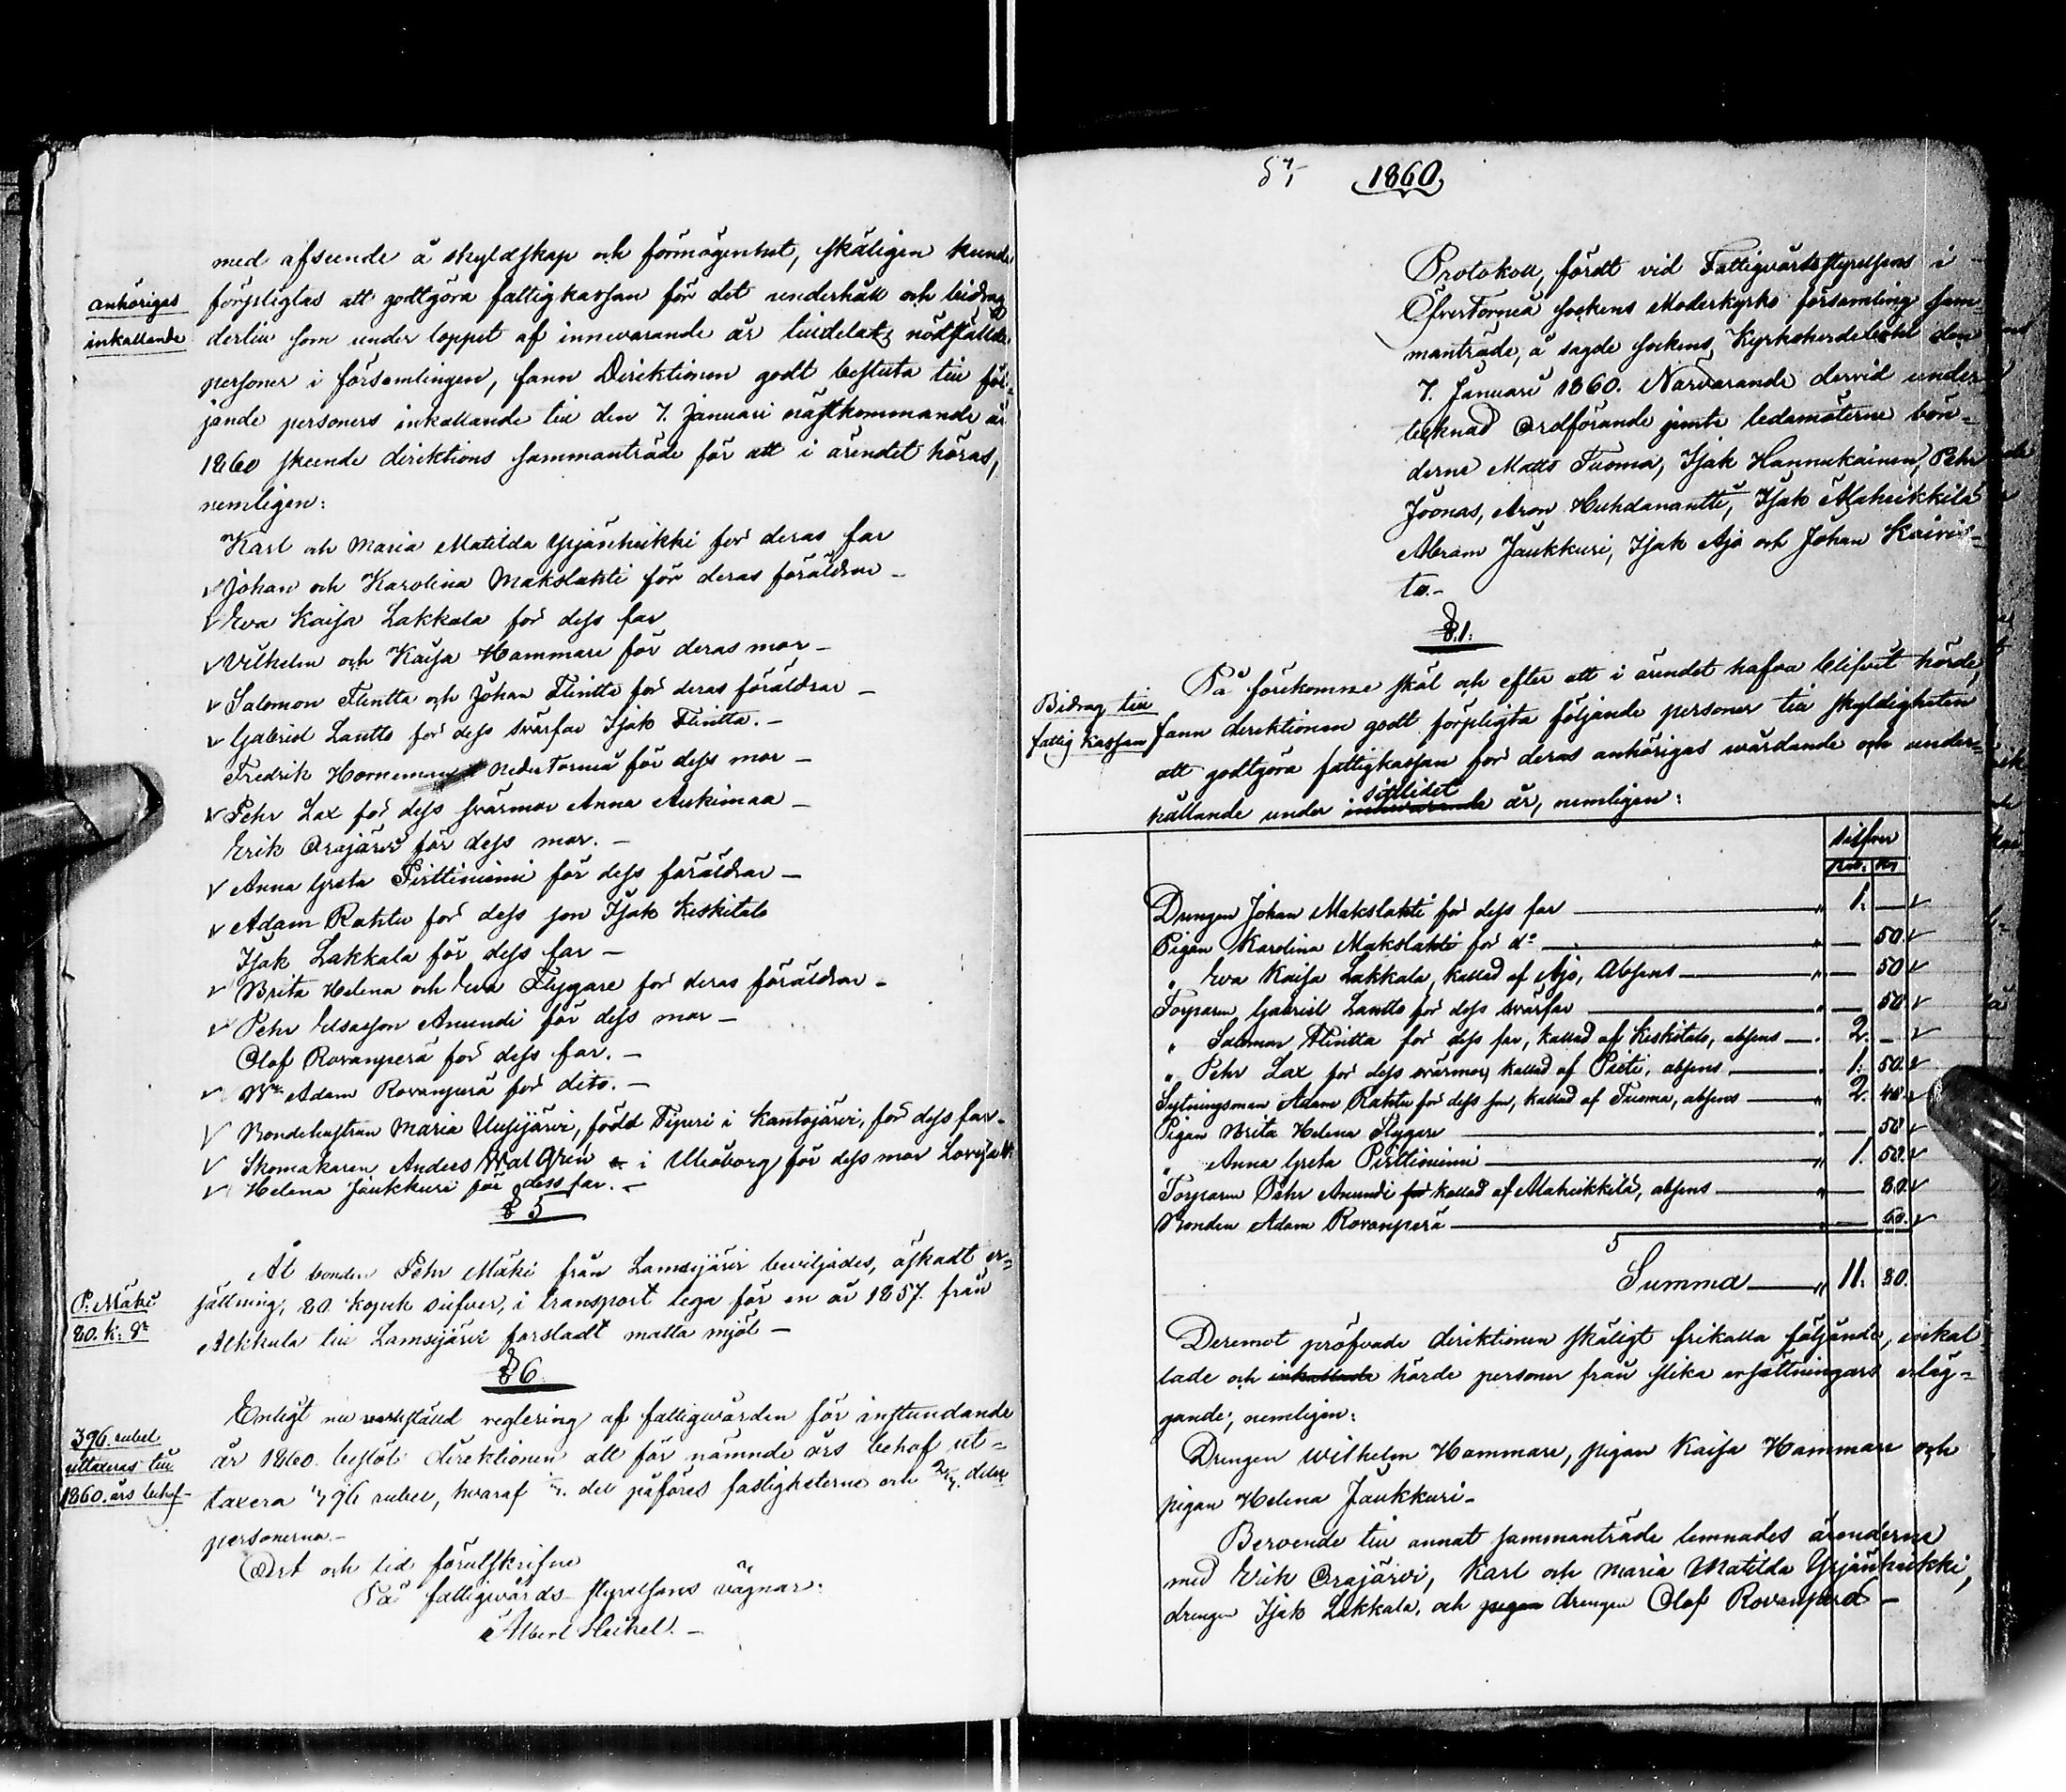 med afseende å skyldskap och förmögenhet, skäligen kunde
anhörigas
inkallande
förpligtas att godtgöra fattigkassan för det underhåll och bidrag
dertill som under loppet af innevarande år tilldelats nödstälde
personer i församlingen, fann Direktionen godt besluta till föl-
jande personers inkallande till den 7. Januari nästkommande år
1860 skeende direktions sammanträde för att i ärendet höras,
nemligen:
Karl och Maria Matilda Yrjänheikki för deras far
√ Johan och Karolina Makslahti för deras föräldrar –
√ Eva Kaisa Lakkala för dess far
√ Vilhelm och Kaisa Hammare för deras mor –
√ Salomon Flintta och Johan Flintta för deras föräldrar –
√ Gabriel Lantto för dess svärfar Isak Flintta. –
Fredrik Horneman Neder Torneå för dess mor –
√ Pehr Lax för dess svärmor Anna Aukimaa –
Erik Orajärvi för dess mor. –
√ Anna Greta Pirttiniemi för dess föräldrar –
√ Adam Rahtu för dess son Isak Keskitalo
Isak Lakkala för dess far –
√ Brita Helena och Eva Flygare för deras föräldrar –
√ Pehr Elsasson Anundi för dess mor –
Olof Rovanperä för dess far. –
√ Adam Rovanperä för dito. –
√ Bondehustrun Maria Uusijärvi, född Tijuri i Kantojärvi, för dess far –
√ Skomakaren Anders WalGren i Uleåborg för dess mor Lovisa W.
√ Helena Jaukkuri för dess far. –
§ 5
P. Mäki
80. k: Sr
Åt bonden Pehr Mäki från Lamsijärvi beviljades, äskadt er-
sättning, 80. kopek silfver, i transport lega för en år 1857. från
Alkkula till Lamsijärvi forsladt matta mjöl –
§ 6
396. rubel
uttaxeras till
1860. års behof –
Enligt nu verkstäld reglering af fattigvården för instundande
år 1860. beslöt direktionen att för nämnde års behof ut-
taxera 396 rubel, hvaraf del påföres fastigheterne och delar
personerna. –
Ort och tid förutskrifne
På fattigvårds-styrelsens vägnar:
Albert Heikel. –
57. 1860.
Protokoll, fördt vid Fattigvårdsstyrelsens i
ÖfverTorneå sockens Moderkyrko församling sam-
manträde, å sagde sockens Kyrkoherdeboställ den
7. Januari 1860. Närvarande dervid under-
tecknad Ordförande jemte ledamöterne bön-
derne Matts Tuoma, Isak Hannukainen, Pehr
Joonas, Aron Huhdanantti, Isak Alaheikkilä
Abram Jaukkuri, Isak Ajo och Johan Koivis-
to. –
§.1.
Bidrag till
fattig kassan
På förekomne skäl och efter att i ärendet hafva blifvit hörde,
fann direktionen godt förpligta följande personer till skyldigheten
att godtgöra fattigkassan för deras anhörigas vårdande och under-
sistlidet
hållande under innevarande år, nemligen:
Silfver
Rub. Kop
Drengen Johan Makslahti för dess far — „ 1. — √
Pigan Karolina Makslahti för do — „ — 50. √
„ Eva Kaisa Lakkala, kallad af Ajo, Absens — „ — 50 √
Torparen Gabriel Lantto för dess svärfar — „ — 50 √
„ Salomon Flintta för dess far, kallad af Keskitalo, absens — „ 2. – √
„ Pehr Lax för dess svärmor, kallad af Pieti, absens — „ 1. 50. √
Sytningsman Adam Rahtu för dess son, kallad af Tuoma, absens — „ 2. 40. √
Pigan Brita Helena Flygare — „ — 50 √
„ Anna Greta Pirttiniemi — „ 1. 50. √
Torparen Pehr Anundi för kallad af Alaheikkilä, absens — „ — 80. √
Bonden Adam Rovanperä — „ — 60. √
Summa — „ 11. 80.
Deremot pröfvade direktionen skäligt frikalla följande, inkal
lade och inkallade hörde personer från slika ersättningars erläg-
gande, nemligen:
Drengen Wilhelm Hammare, pigan Kaisa Hammare och
pigan Helena Jaukkuri –
Beroende till annat sammanträde lemnades ärenderne
med Erik Orajärvi, Karl och Maria Matilda Yrjänheikki,
drengen Isak Lakkala, och pigan drengen Olof Rovanperä –